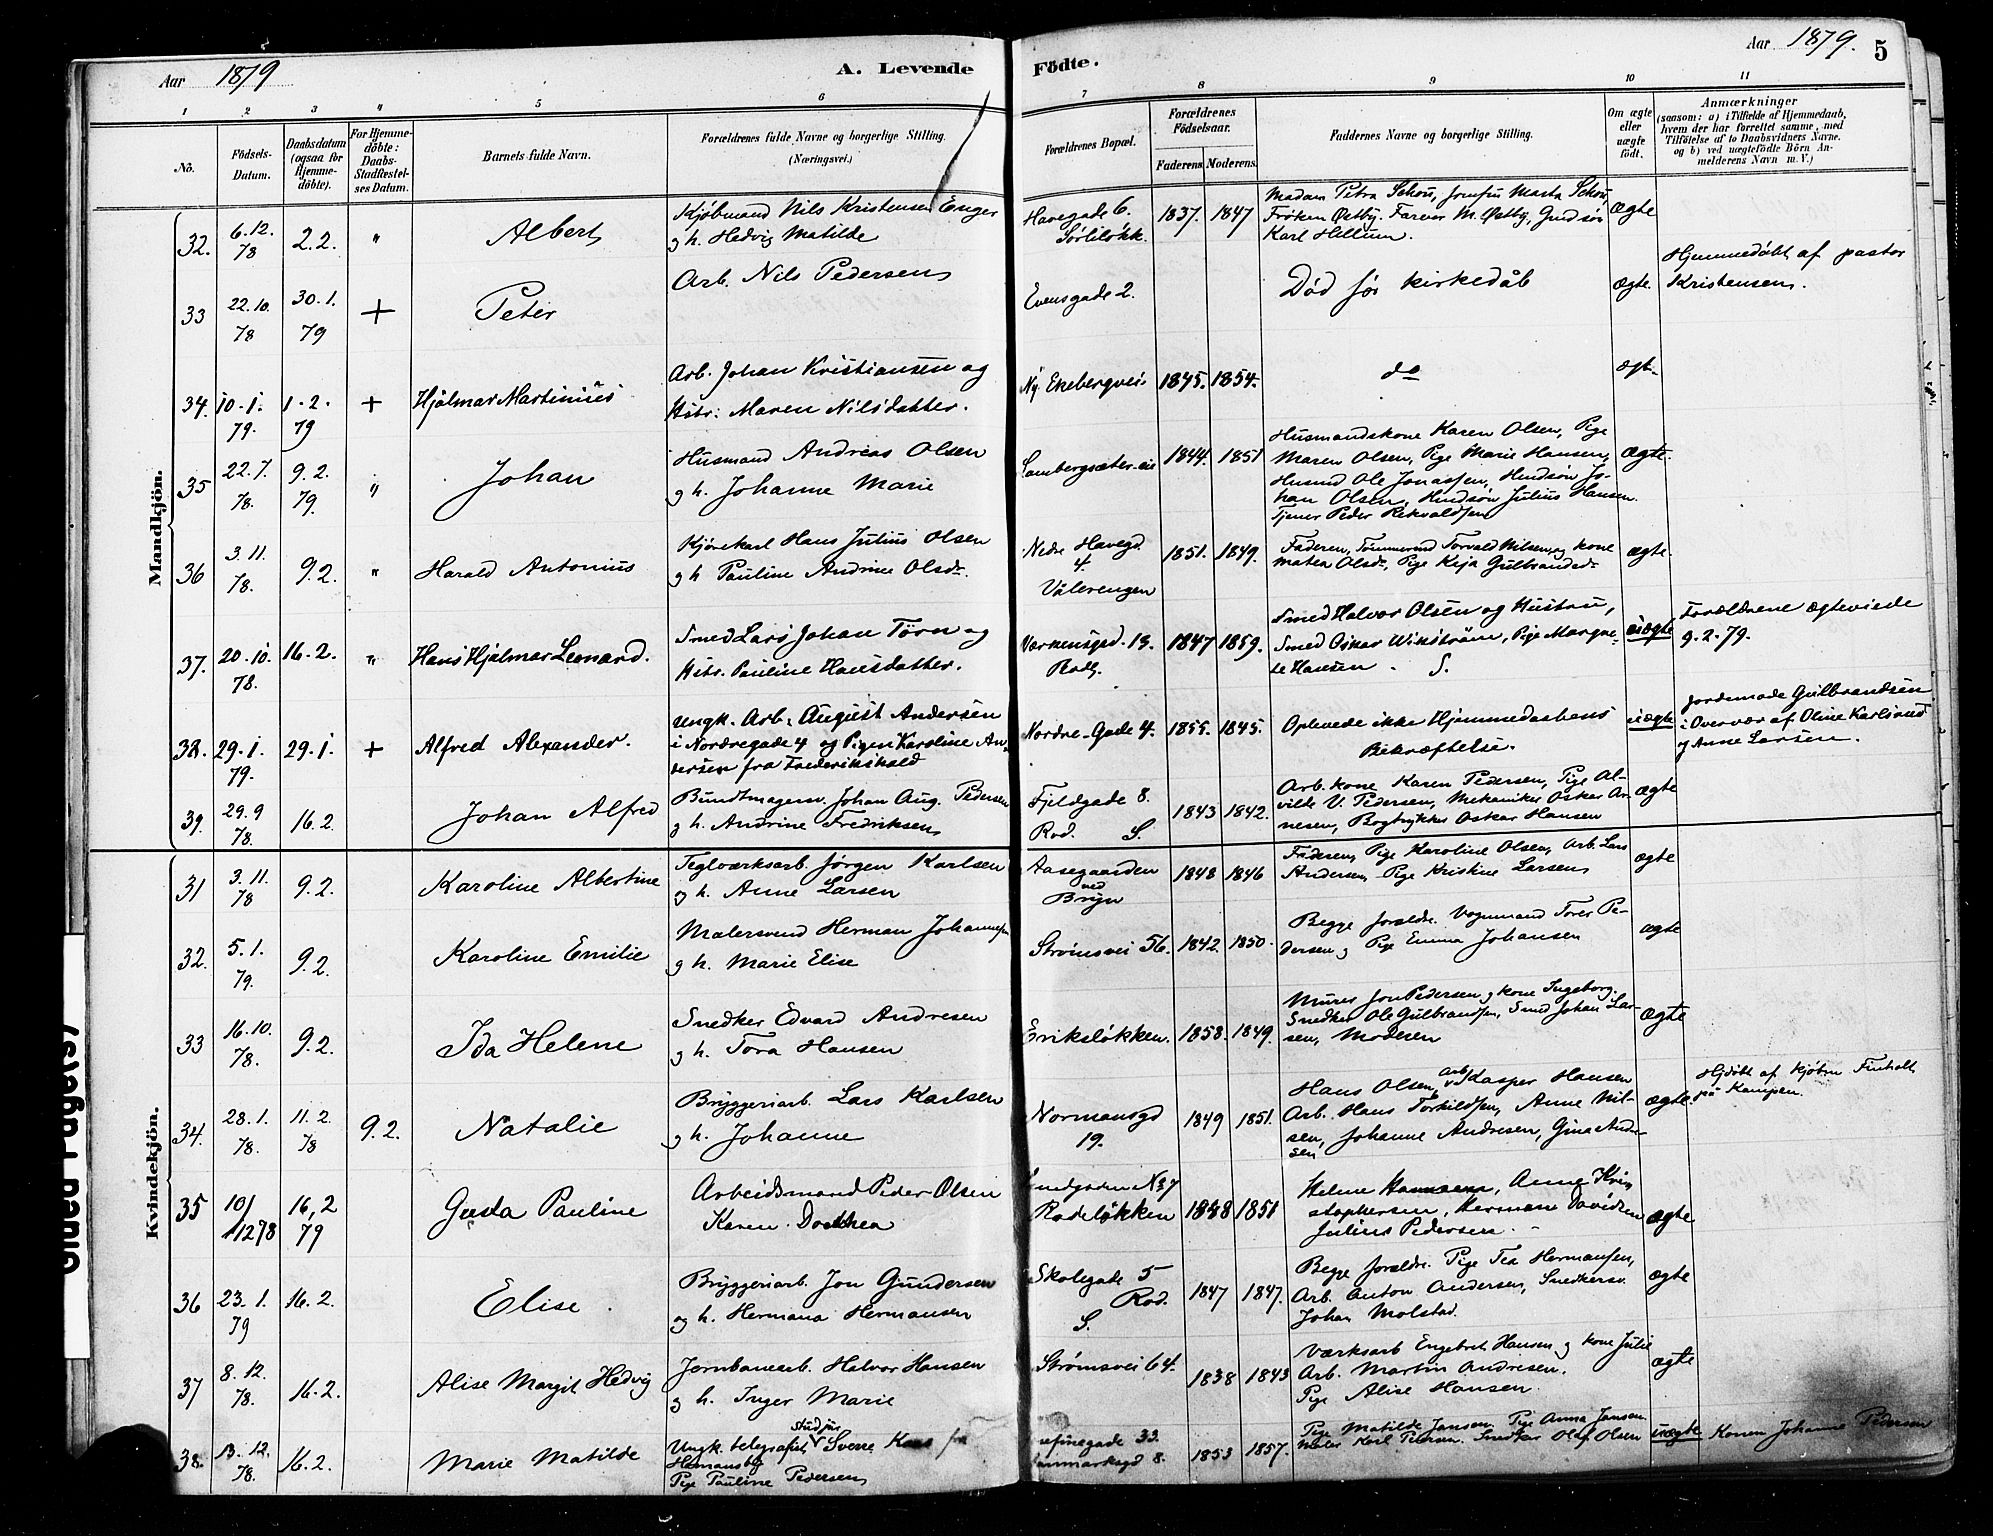 Aar 1879
A. Levende Födte.
Aar 1879. 5
1 2 3 4 5 6 7 8 9 10 11
No.
Födsels-Datum.
Daabsdatum (ogsaa for Hjemmedöbte).
For Hjemmedöbte: Daabs-Stadfæstelses Datum.
Barnets fulde Navn.
Forældrenes fulde Navne og borgerlige Stilling. (Næringsvei.)
Forældrenes Bopæl.
Forældrenes Födselsaar.
Faderens. Moderens.
Faddernes Navne og borgerlige Stilling.
Om ægte eller uægte født.
Anmærkninger
(saasom: a) i Tilfælde af Hjemmedaab, hvem der har forrettet samme, med Tilföielse af to Daabsvidners Navne. og b) ved uægtefödte Börn Anmelderens Navn m. V.)
Mandkjön.
32. 6.12. 78 2.2. " Albert
Kjöbmand Nils Kristensen Enger
og h. Hedvig Matilde
Havegade 6.
Sørliløkk.
1837. 1847
Madam Petra Schou, Jomfru Marta Schou,
Frøken Østby. Farver M. Østby, Gmdsøn
Karl Hellum.
Ægte
33 22.10. 78 30.1. 79 + Peter
Arb. Nils Pedersen
Evensgade 2.
Död før kirkedåb
Ægte.
Hjemmedöbt af pastor
Kristensen.
34. 10.1. 79. 1.2. 79 + Hjalmar Martinius
Arb. Johan Kristiansen og
Hstr: Maren Nilsdatter.
Ny Ekebergvei.
1845. 1854.
do
ægte
35 22.7. 78. 9.2. 79. " Johan
Husmand Andreas Olsen
og h. Johanne Marie
Lambergsæter eie
1844. 1851
Husmandskone Karen Olsen, Pige
Maren Olsen, Pige Marie Hansen,
Husmd Ole Jonassen, Hmdsøn Jo-
han Olsen, Hmdsøn Julius Hansen.
Tjener Peder Rekvaldsen
Ægte.
36 3.11. 78. 9.2. " Harald Antonius
Kjørekarl Hans Julius Olsen
og h Pauline Andrine Olsdr.
Nedre Havegd.
4.
Vålerengen
1851. 1849.
Faderen, Tømmermd Torvald Nilsen og kone
Matea Olsdr, Pige Kaja Gulbrandsdr
ægte.
37. 20.10. 78. 16.2. " Hans Hjalmar Leonard.
Smed Lars Johan Törn og
Hstr. Pauline Hansdatter.
Verkensgd. 13.
Rodl.
1847 1859.
Smed Halvor Olsen og Hustru,
Smed Oskar Wikström, Pige Margre-
te Hansen. S.
uægte
Forældrene ægteviede
9.2.79.
38. 29.1. 79. 29.1. + Alfred Alexander.
Ungk. Arb: August Andersen
i Nordregade 4 og Pigen Karoline An-
dersen fra Frederikshald
Nordre-Gade 4.
1855. 1845.
Oplevede ikke Hjemmedaabens
Bekræftelse.
uægte
Jordemode Gulbrandsen
i Overvær af Oline Karlsrud
og Anne Larsen.
39. 29.9 78. 16.2. Johan Alfred
Bundtmagersv. Johan Aug. Pedersen
og h. Andrine Fredriksen
Fjeldgade 8.
Rod. S.
1843 1842.
Arb. kone Karen Pedersen, Pige Al-
vilde V. Pedersen, Mekaniker Oskar Ar-
nesen, Bogtrykker Oskar Hansen
ægte
Kvindekjön.
31 3.11. 78 9.2. Karoline Albertine
Teglværksarb. Jørgen Karlsen
og h. Anne Larsen
Aasegaarden
ved
Bryn
1848 1846
Faderen, Pige Karoline Olsen, Arb. Lars
Andersen, Pige Kristine Larsen
ægte
32. 5.1. 79. 9.2. Karoline Emilie
Malersvend Herman Johannesen
og h. Marie Elise
Strømsvei 56.
1842. 1850.
Begge foreldre. Vognmand Torer Pe-
dersen og Pige Emma Johansen
ægte
33 16.10. 78. 9.2. Ida Helene
Snedker Edvard Andresen
og h. Tora Hansen
Eriksløkken.
1858. 1849.
Murer Jon Pedersen og kone Ingeborg.
Snedker Ole Gulbrandsen, Smed Johan Lar-
sen, Moderen
ægte
34. 28.1. 78. 11.2. 78 9.2. Natalie
Bryggeriarb. Lars Karlsen
og h. Johanne
Normansgd
19.
1849 1851.
Hans Olsen, arb Kasper Hansen
Arb. Hans Torkildsen, Anne Nil-
sen, Johanne Andresen, Gina Andre-
sen
ægte.
Hjdöbt af kjöbm Finholt
på Kampen.
35 10/12 78 16,2 79 Gusta Pauline
Arbeidsmand Peder Olsen
Karen Dorthea
N 37
Rodeløkken
1848 1851
Helene Hansen, Anne Kri
stophersen, Herman Davidsen
Julius Pedersen
ægte
36 23.1. 79 16.2. Elise.
Bryggeriarb. Jon Gundersen
og h. Hermana Hermansen
Skolegade 5
Rod.
S.
1847 1847.
Begge foreldre. Pige Tea Hermansen,
Arb. Anton Andersen, Snedkersv.
Johan Molstad.
ægte
37 8.12. 78. 16.2. Alise Margit Hedvig
Jernbanearb. Halvor Hansen
og h. Inger Marie
Strømsvei 64.
1838 1843
Værksarb Engebret Hansen og kone Julie
Arb. Martin Andresen.
Pige Alise Hansen.
ægte
38. 13.12. 78. 16.2. Marie Matilde
Ungk. telegrafist Sverre
Homansby
Pige Pauline Pedersen
33.
8.
1853 1857.
Pige Matilde Jansen. Pige Anna Jansen
Maler Karl Petersen. Snedker Olaf Olsen
uægte
Konen Johanne Pedersen